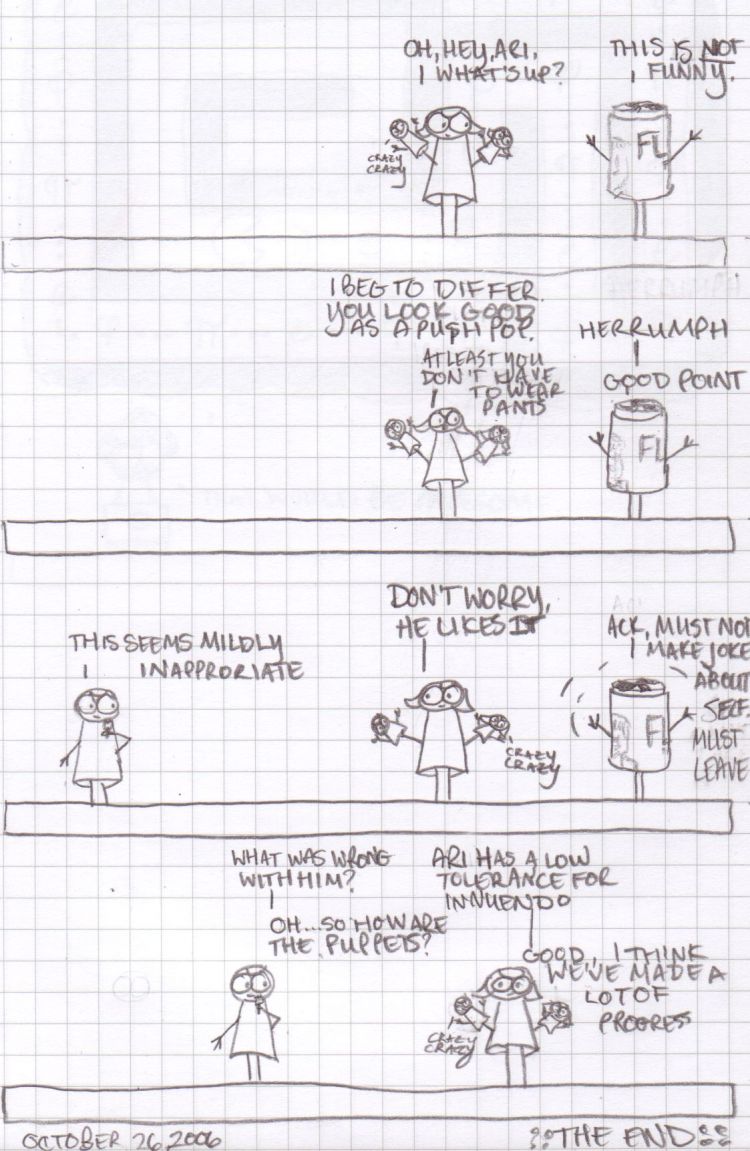 OH, HEY, ARI,
WHAT'S UP?
THIS IS NOT
FUNNY.
CRAZY
CRAZY
FL
I BEG TO DIFFER.
YOU LOOK GOOD
AS A PUSH POP.
AT LEAST YOU
DON'T HAVE
TO WEAR
PANTS
HERRUMPH
GOOD POINT
FL
THIS SEEMS MILDLY
INAPPRORIATE
DON'T WORRY,
HE LIKES IT
CRAZY
CRAZY
ACK, MUST NOT
MAKE JOKE
ABOUT
SELF.
MUST
LEAVE
FL
WHAT WAS WRONG
WITH HIM?
ARI HAS A LOW
TOLERANCE FOR
INNUENDO
OH...SO HOW ARE
THE PUPPETS?
GOOD. I THINK
WE'VE MADE A
LOT OF
PROGRESS
CRAZY
CRAZY
OCTOBER 26, 2006
THE END